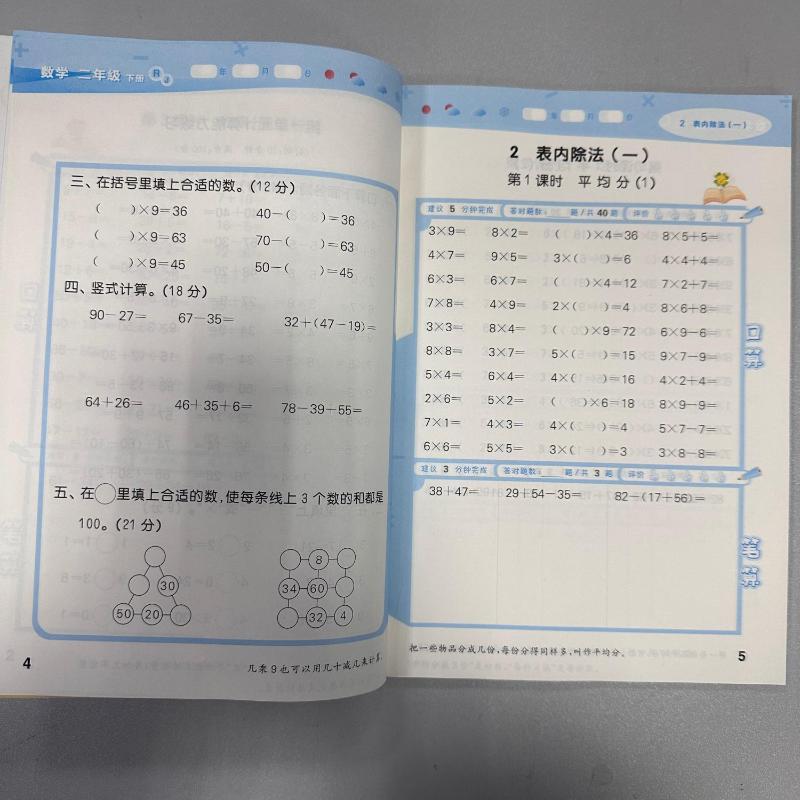 数学 二年级 下册 RJ
年 月 日
三、在括号里填上合适的数。(12分)
(  )×9=36 40-(  )=36
(  )×9=63 70-(  )=63
(  )×9=45 50-(  )=45
四、竖式计算。(18分)
90-27= 67-35= 32+(47-19)=
64+26= 46+35+6= 78-39+55=
五、在○里填上合适的数,使每条线上3个数的和都是
100。(21分)
8
30 34 60
50 20 32 4
几乘9也可以用几十减几来计算。
4
年 月 日
2 表内除法(一)
2 表内除法(一)
第1课时 平均分(1)
建议 5 分钟完成 答对题数: 题/共 40 题 评价
3×9= 8×2= (  )×4=36 8×5+5=
4×7= 9×5= 3×(  )=6 4×4+4=
6×3= 6×7= (  )×4=12 7×2+7=
7×8= 4×9= 2×(  )=4 8×6+8=
3×3= 8×4= (  )×9=72 6×9-6=
8×8= 3×7= 5×(  )=15 9×7-9=
5×4= 6×4= 4×(  )=16 4×2+4=
2×6= 5×2= (  )×6=18 8×9-9=
7×1= 4×3= 4×(  )=4 5×7-7=
6×6= 5×5= 3×(  )=3 3×8-8=
口算
建议 3 分钟完成 答对题数: 题/共 3 题 评价
38+47= 29+54-35= 82-(17+56)=
笔算
把一些物品分成几份,每份分得同样多,叫作平均分。
5